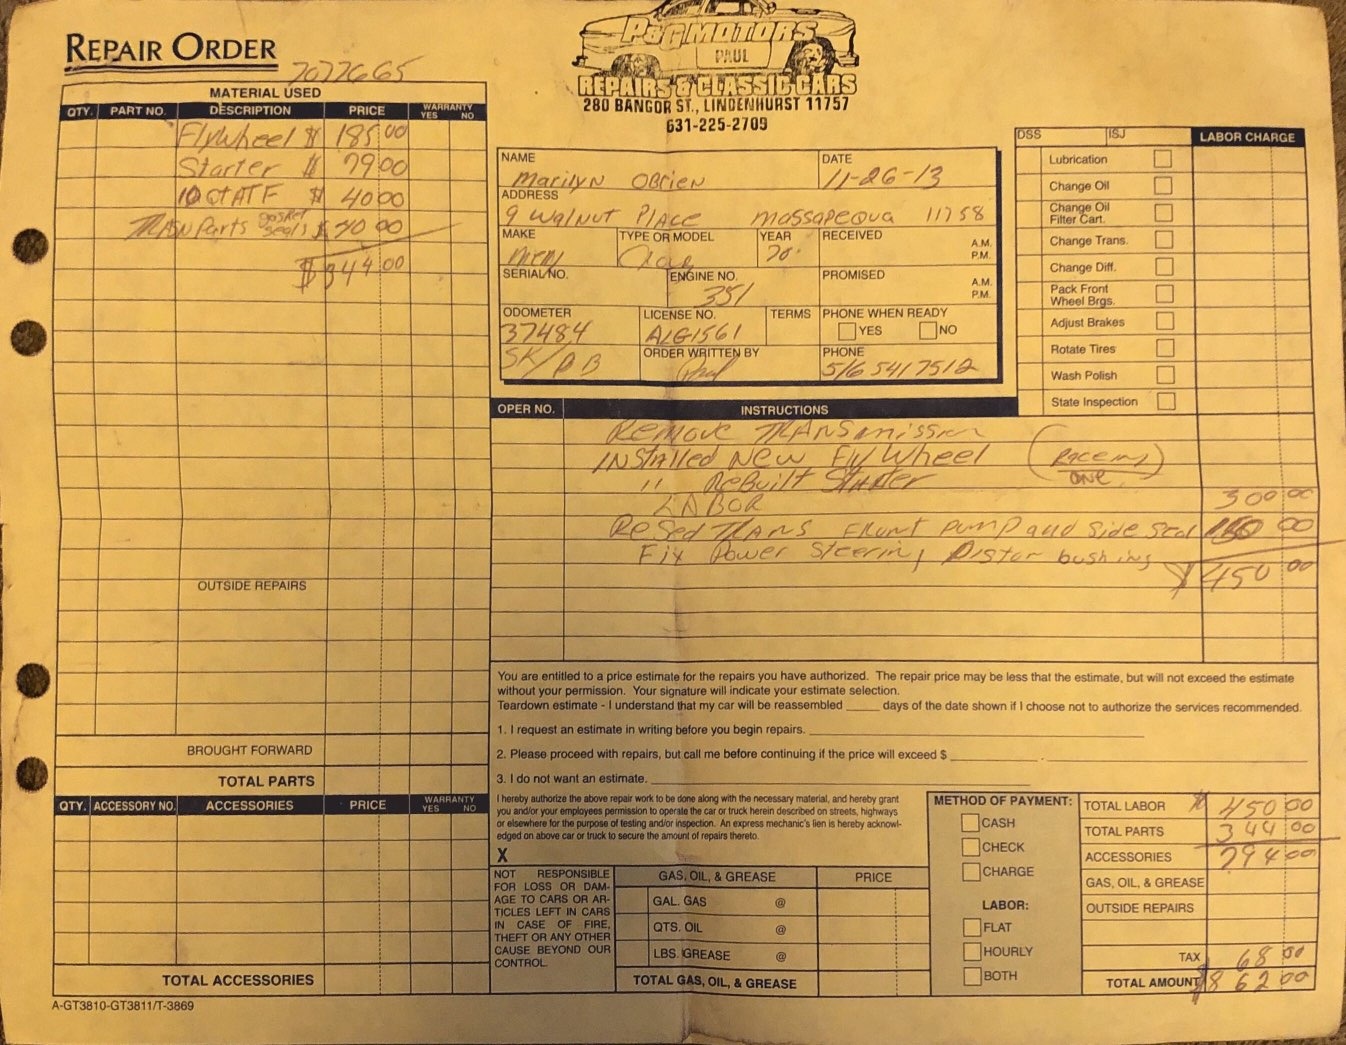 REPAIR ORDER
7077665
P&G MOTORS
PAUL
REPAIRS & CLASSIC CARS
280 BANGOR ST., LINDENHURST 11757
631-225-2709
MATERIAL USED
QTY. PART NO. DESCRIPTION PRICE WARRANTY YES NO
FlyWheel $ 185 00
Starter $ 79 00
10 QT ATF $ 40 00
TRAN Parts gasket seals $ 40 00
$344 00
OUTSIDE REPAIRS
BROUGHT FORWARD
TOTAL PARTS
QTY. ACCESSORY NO. ACCESSORIES PRICE WARRANTY YES NO
TOTAL ACCESSORIES
A-GT3810-GT3811/T-3869
NAME DATE
Marilyn OBrien 11-26-13
ADDRESS
9 Walnut Place Massapequa 11758
MAKE TYPE OR MODEL YEAR RECEIVED A.M. P.M.
70
SERIAL NO. ENGINE NO. PROMISED A.M. P.M.
351
ODOMETER LICENSE NO. TERMS PHONE WHEN READY
37484 ALG1561 YES NO
ORDER WRITTEN BY PHONE
SK/PB Paul 516 541 7512
DSS ISJ LABOR CHARGE
Lubrication
Change Oil
Change Oil Filter Cart.
Change Trans.
Change Diff.
Pack Front Wheel Brgs.
Adjust Brakes
Rotate Tires
Wash Polish
State Inspection
OPER NO. INSTRUCTIONS
Remove TRANSmission
INStAlled New FlyWheel (Raceing one)
" ReBuilt Starter
LABOR 300 00
ReSed TRANS Front pump and Side Seal 150 00
Fix Power Steering Pistor bushing $450 00
You are entitled to a price estimate for the repairs you have authorized. The repair price may be less that the estimate, but will not exceed the estimate
without your permission. Your signature will indicate your estimate selection.
Teardown estimate - I understand that my car will be reassembled _____ days of the date shown if I choose not to authorize the services recommended.
1. I request an estimate in writing before you begin repairs.
2. Please proceed with repairs, but call me before continuing if the price will exceed $
3. I do not want an estimate.
I hereby authorize the above repair work to be done along with the necessary material, and hereby grant
you and/or your employees permission to operate the car or truck herein described on streets, highways
or elsewhere for the purpose of testing and/or inspection. An express mechanic's lien is hereby acknowl-
edged on above car or truck to secure the amount of repairs thereto.
X
NOT RESPONSIBLE
FOR LOSS OR DAM-
AGE TO CARS OR AR-
TICLES LEFT IN CARS
IN CASE OF FIRE,
THEFT OR ANY OTHER
CAUSE BEYOND OUR
CONTROL.
GAS, OIL, & GREASE PRICE
GAL. GAS @
QTS. OIL @
LBS. GREASE @
TOTAL GAS, OIL, & GREASE
METHOD OF PAYMENT:
CASH
CHECK
CHARGE
LABOR:
FLAT
HOURLY
BOTH
TOTAL LABOR $ 450 00
TOTAL PARTS 344 00
ACCESSORIES 794 00
GAS, OIL, & GREASE
OUTSIDE REPAIRS
TAX 68 00
TOTAL AMOUNT $862 00